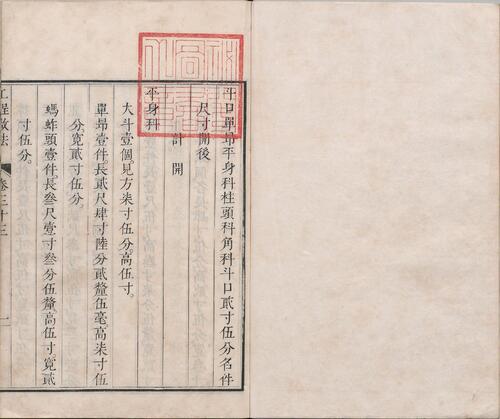 斗口單昻平身科柱頭科角科斗口貳寸伍分名件
尺寸開後
計開
平身科
大斗壹個見方柒寸伍分。高伍寸。
單昻壹件。長貳尺肆寸陸分貳釐伍毫。高柒寸伍
分。寬貳寸伍分。
螞蚱頭壹件。長叁尺壹寸叁分伍釐。高伍寸。寬貳
寸伍分。
工程做法
卷三十三
一